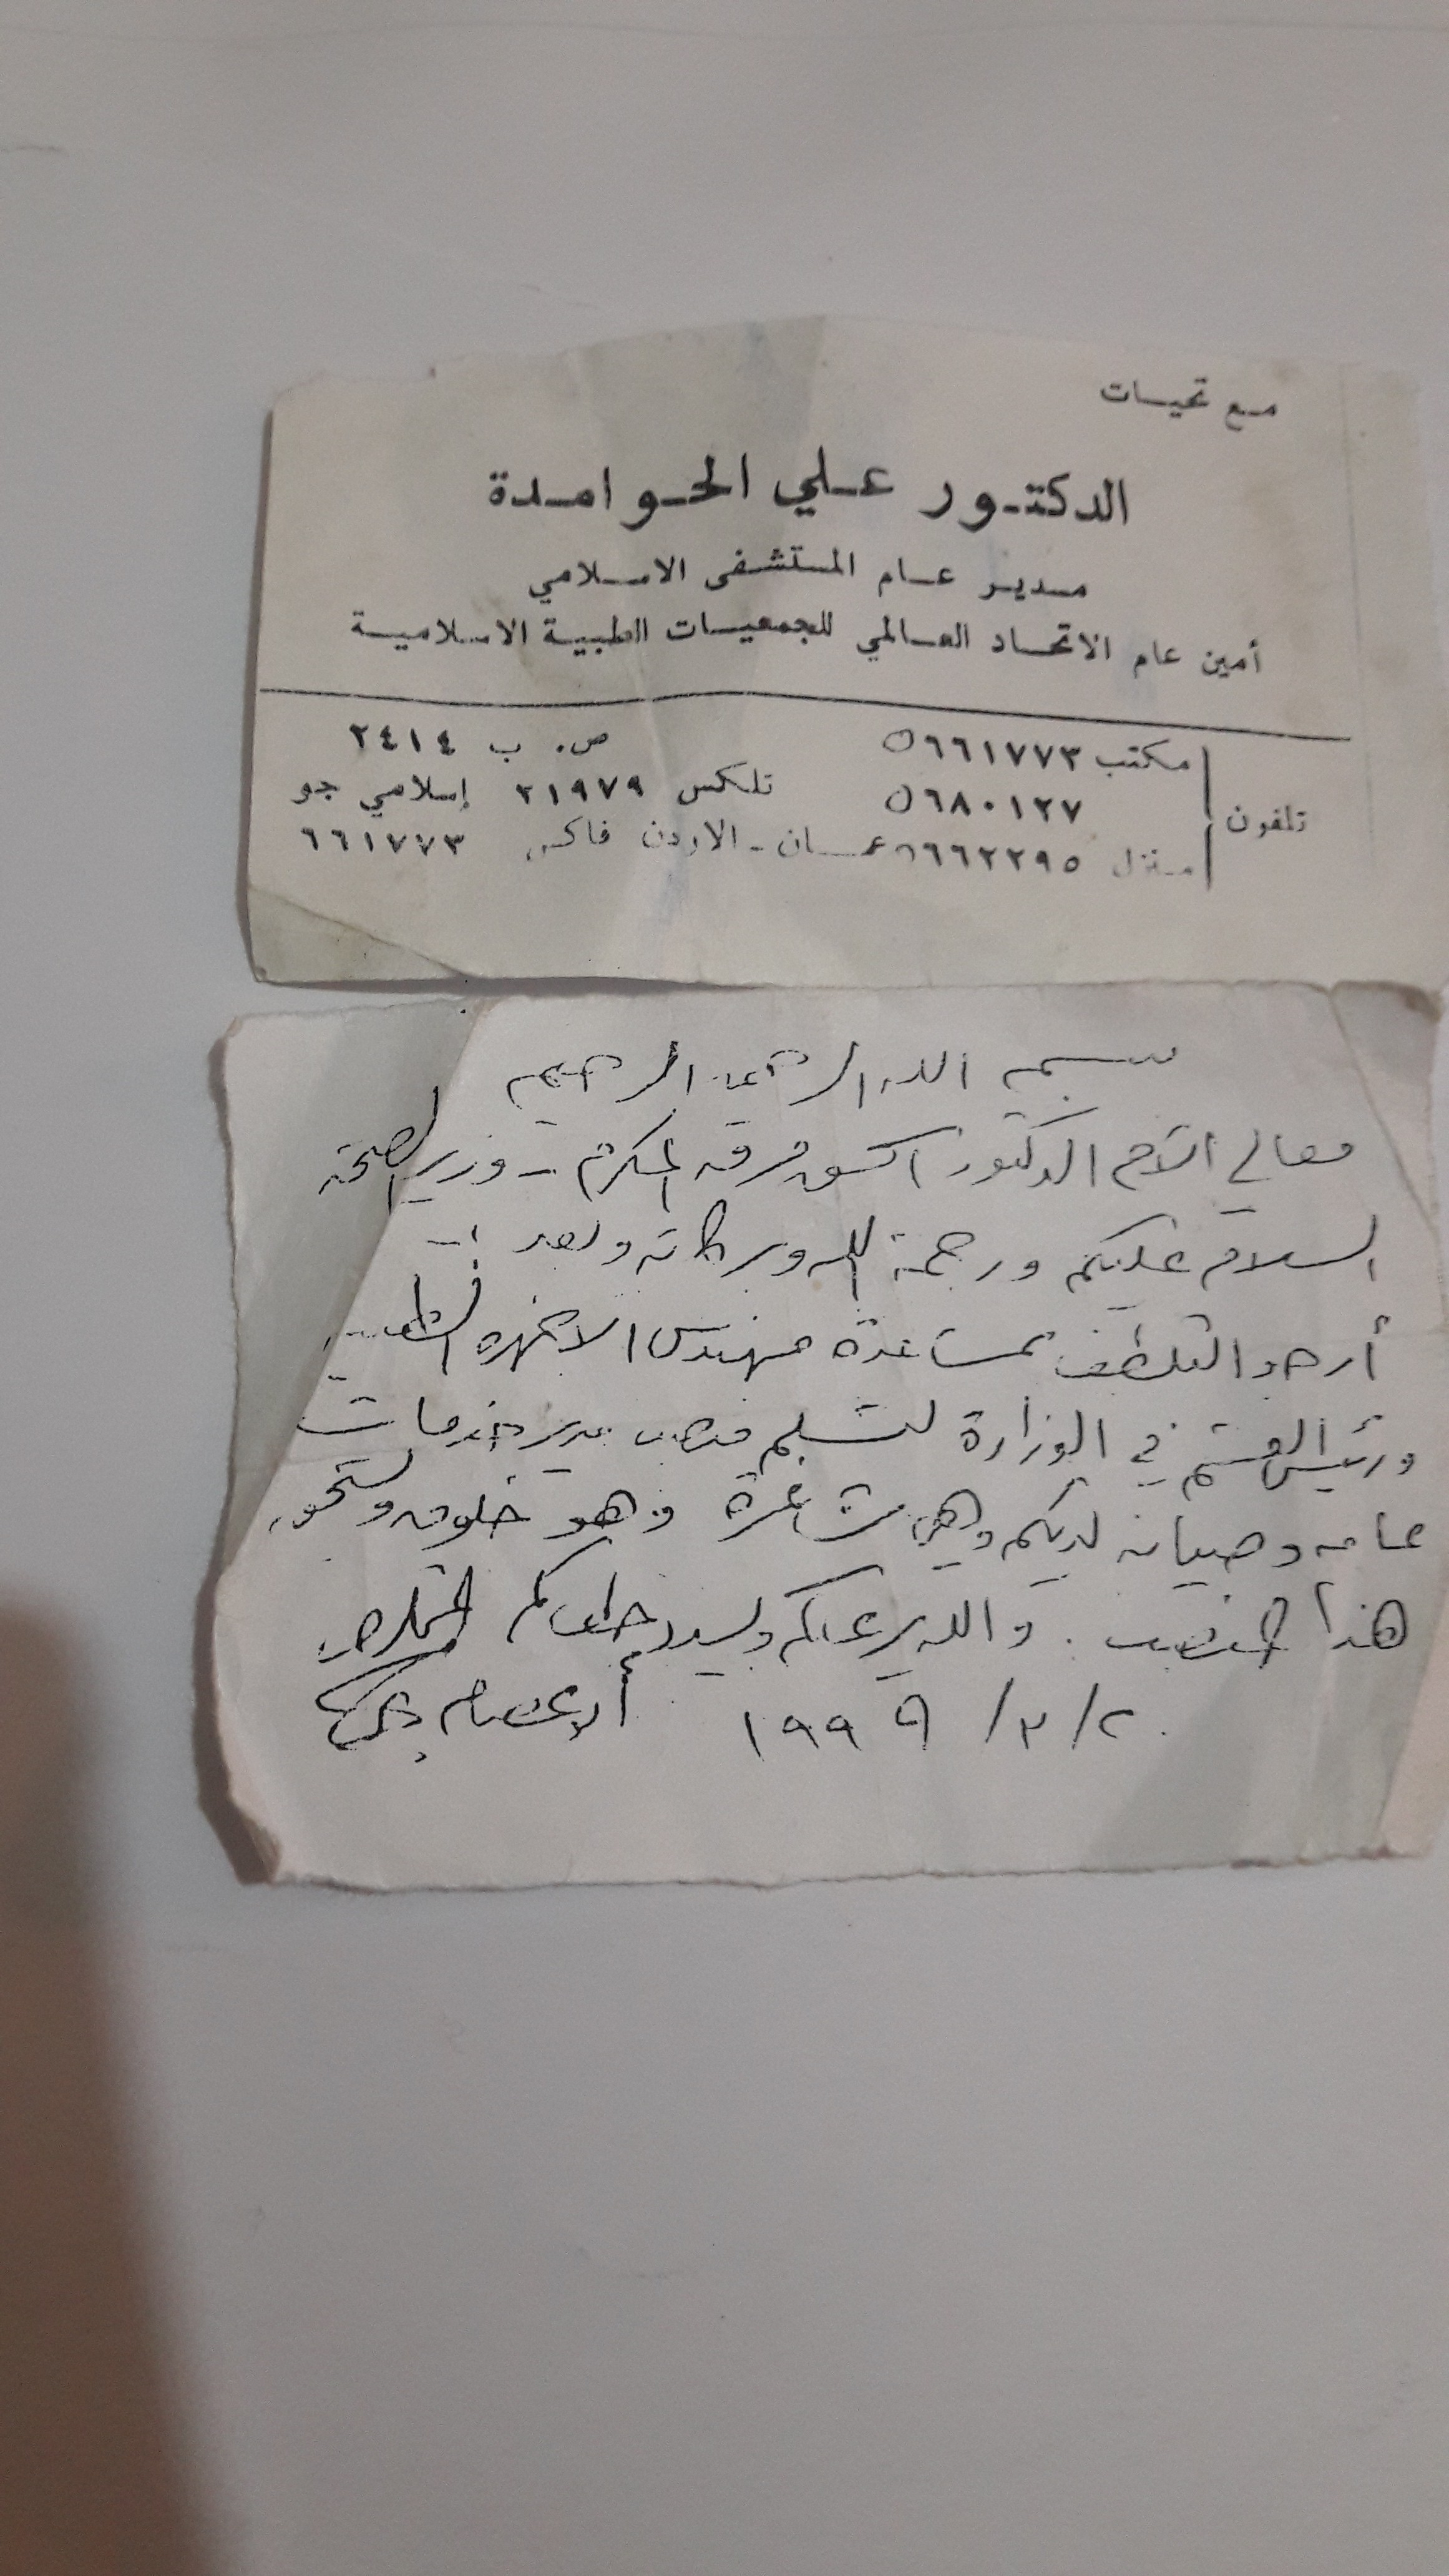 مع تحيات
الدكتور علي الحوامدة
مدير عام المستشفى الاسلامي
أمين عام الاتحاد العالمي للجمعيات الطبية الاسلامية
تلفون
مكتب ٥٦٦١٧٧٣ ص. ب ٢٤١٤
٥٦٨٠١٢٧ تلكس ٢١٩٧٩ إسلامي جو
منزل ٥٦٦٢٢٩٥ عمان - الاردن فاكس ٦٦١٧٧٣
بسم الله الرحمن الرحيم
معالي الأخ الدكتور المكرم - وزير الصحة
السلام عليكم ورحمة الله وبركاته وبعد :-
أرجو التلطف بمساعدة مهندس الاجهزه الطبية
ورئيس القسم في الوزارة لتسلم منصب مدير خدمات
عامه وصيانه لديكم وهي شاغرة وهو خلوق ويستحق
هذا المنصب . والله يرعاكم ويسدد خطاكم المخلص
٢/٣/١٩٩٩